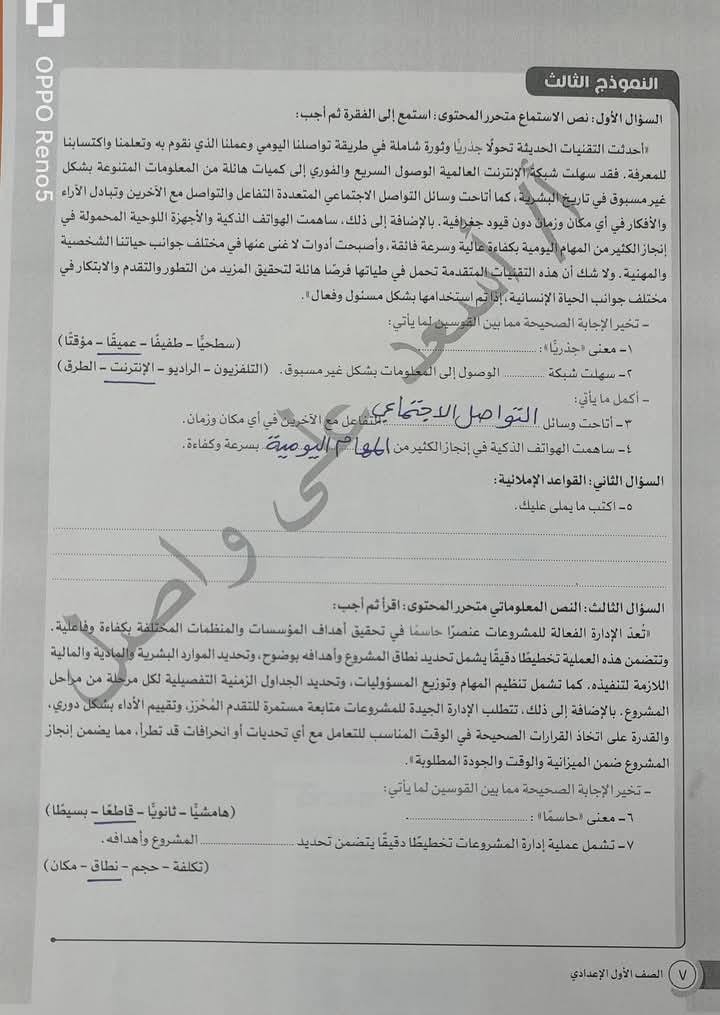 OPPO Reno5
النموذج الثالث
السؤال الأول: نص الاستماع متحرر المحتوى: استمع إلى الفقرة ثم أجب:
«أحدثت التقنيات الحديثة تحولًا جذريًا وثورة شاملة في طريقة تواصلنا اليومي وعملنا الذي نقوم به وتعلمنا واكتسابنا
للمعرفة. فقد سهلت شبكة الإنترنت العالمية الوصول السريع والفوري إلى كميات هائلة من المعلومات المتنوعة بشكل
غير مسبوق في تاريخ البشرية، كما أتاحت وسائل التواصل الاجتماعي المتعددة التفاعل والتواصل مع الآخرين وتبادل الآراء
والأفكار في أي مكان وزمان دون قيود جغرافية. بالإضافة إلى ذلك، ساهمت الهواتف الذكية والأجهزة اللوحية المحمولة في
إنجاز الكثير من المهام اليومية بكفاءة عالية وسرعة فائقة، وأصبحت أدوات لا غنى عنها في مختلف جوانب حياتنا الشخصية
والمهنية. ولا شك أن هذه التقنيات المتقدمة تحمل في طياتها فرصًا هائلة لتحقيق المزيد من التطور والتقدم والابتكار في
مختلف جوانب الحياة الإنسانية، إذا تم استخدامها بشكل مسئول وفعال».
- تخير الإجابة الصحيحة مما بين القوسين لما يأتي:
١- معنى «جذريًّا»: .......... (سطحيًّا - طفيفًا - عميقًا - مؤقتًا)
٢- سهلت شبكة .......... الوصول إلى المعلومات بشكل غير مسبوق. (التلفزيون - الراديو - الإنترنت - الطرق)
- أكمل ما يأتي:
٣- أتاحت وسائل التواصل الاجتماعي التفاعل مع الآخرين في أي مكان وزمان.
٤- ساهمت الهواتف الذكية في إنجاز الكثير من المهام اليومية بسرعة وكفاءة.
السؤال الثاني: القواعد الإملائية:
٥- اكتب ما يملى عليك.
السؤال الثالث: النص المعلوماتي متحرر المحتوى: اقرأ ثم أجب:
«تُعدّ الإدارة الفعالة للمشروعات عنصرًا حاسمًا في تحقيق أهداف المؤسسات والمنظمات المختلفة بكفاءة وفاعلية.
وتتضمن هذه العملية تخطيطًا دقيقًا يشمل تحديد نطاق المشروع وأهدافه بوضوح، وتحديد الموارد البشرية والمادية والمالية
اللازمة لتنفيذه. كما تشمل تنظيم المهام وتوزيع المسؤوليات، وتحديد الجداول الزمنية التفصيلية لكل مرحلة من مراحل
المشروع. بالإضافة إلى ذلك، تتطلب الإدارة الجيدة للمشروعات متابعة مستمرة للتقدم المُحْرَز، وتقييم الأداء بشكل دوري،
والقدرة على اتخاذ القرارات الصحيحة في الوقت المناسب للتعامل مع أي تحديات أو انحرافات قد تطرأ، مما يضمن إنجاز
المشروع ضمن الميزانية والوقت والجودة المطلوبة».
- تخير الإجابة الصحيحة مما بين القوسين لما يأتي:
٦- معنى «حاسمًا»: .......... (هامشيًّا - ثانويًّا - قاطعًا - بسيطًا)
٧- تشمل عملية إدارة المشروعات تخطيطًا دقيقًا يتضمن تحديد .......... المشروع وأهدافه.
(تكلفة - حجم - نطاق - مكان)
٧ الصف الأول الإعدادي
أ/ أسعد على واصل